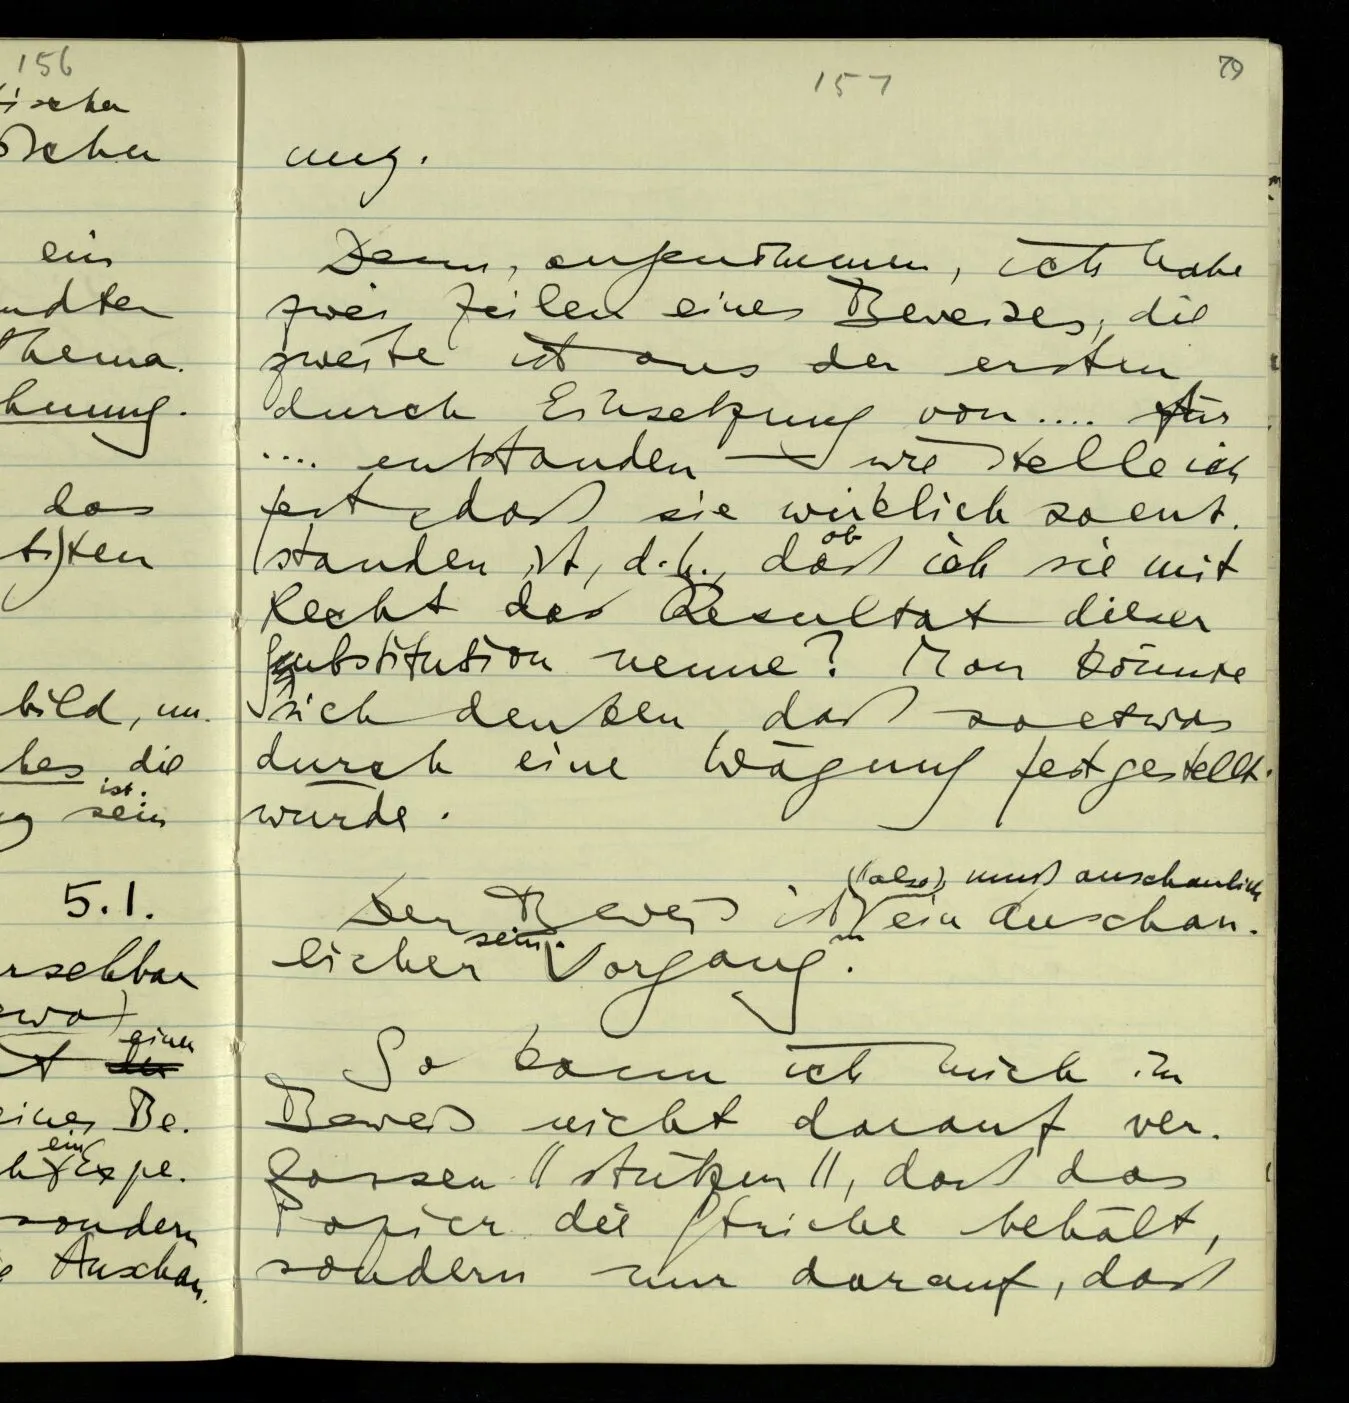 156
ischen
schen
ein
ndten
thema.
hnung.
das
ti)ten
bild, un.
hes die
ist.
g sein
5.1.
rschbar
ewa)
einen
t der
eines Be.
ein
h Expe.
sondern
e Anschau.
157
79
ung.
Denn, angenommen, ich habe
zwei Zeilen eines Beweises, die
zweite ist aus der ersten
durch Einsetzung von .... für
.... entstanden — wie stelle ich
fest, daß sie wirklich so ent.
ob
standen ist, d.h., daß ich sie mit
Recht das Resultat dieser
Substitution nenne? Man könnte
sich denken, daß so etwas
durch eine Wägung festgestellt
würde.
(also) muß anschaulich
Der Beweis ist ein anschau.
sein.
licher Vorgang.
So kann ich mich im
Beweis nicht darauf ver.
lassen "stützen", daß das
Papier die Striche behält,
sondern nur darauf, daß